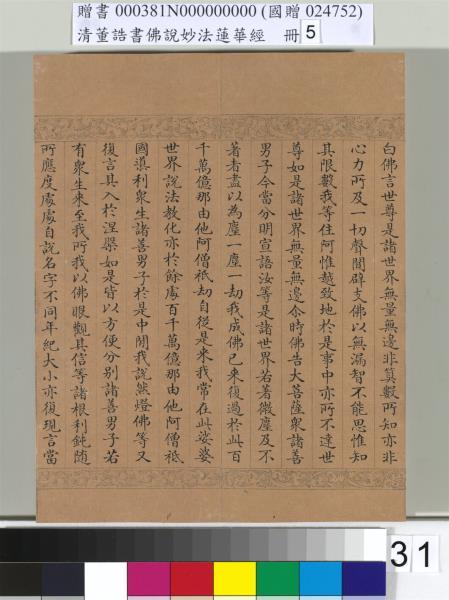 贈書 000381N000000000 (國贈 024752)
清董誥書佛說妙法蓮華經　冊 5
白佛言世尊是諸世界無量無邊非算數所知亦非
心力所及一切聲聞辟支佛以無漏智不能思惟知
其限數我等住阿惟越致地於是事中亦所不達世
尊如是諸世界無量無邊尒時佛告大菩薩眾諸善
男子今當分明宣語汝等是諸世界若著微塵及不
著者盡以為塵一塵一劫我成佛已來復過於此百
千萬億那由他阿僧祇劫自從是來我常在此娑婆
世界說法教化亦於餘處百千萬億那由他阿僧祇
國導利眾生諸善男子於是中間我說然燈佛等又
復言其入於涅槃如是皆以方便分別諸善男子若
有眾生來至我所我以佛眼觀其信等諸根利鈍隨
所應度處處自說名字不同年紀大小亦復現言當
31